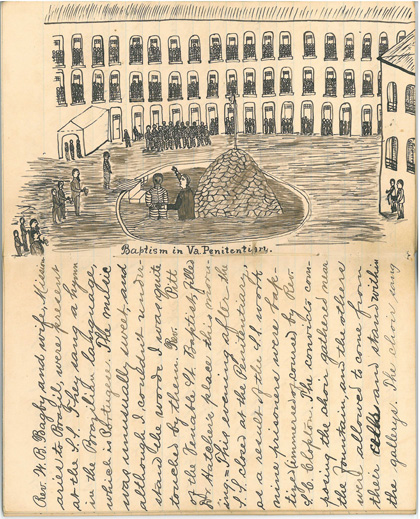 Baptism in Va. Penitentiary.
Rev. W. B. Bagby and wife, Mission
aries to Brazil, were present
at the S.S. They sang a hymn
in the Brazilian language,
which is Portugese. The music
was unusually sweet, and
although I couldnt under-
stand the words I was quite
touched by them. Rev. Pitt
of the Venable St. Baptist, filled
Dr Hatcher place this morn-
ing= This evening after the
S.S. closed at the Penitentiary,
as a result of the S.S. work
nine prisoners were bap-
(immersed) by Rev.
S.C. Clopton. The convicts com-
posing the choir gathered near
the fountain, and the others
were allowed to come from
their cells and stand within
the gallerys. The choir sung